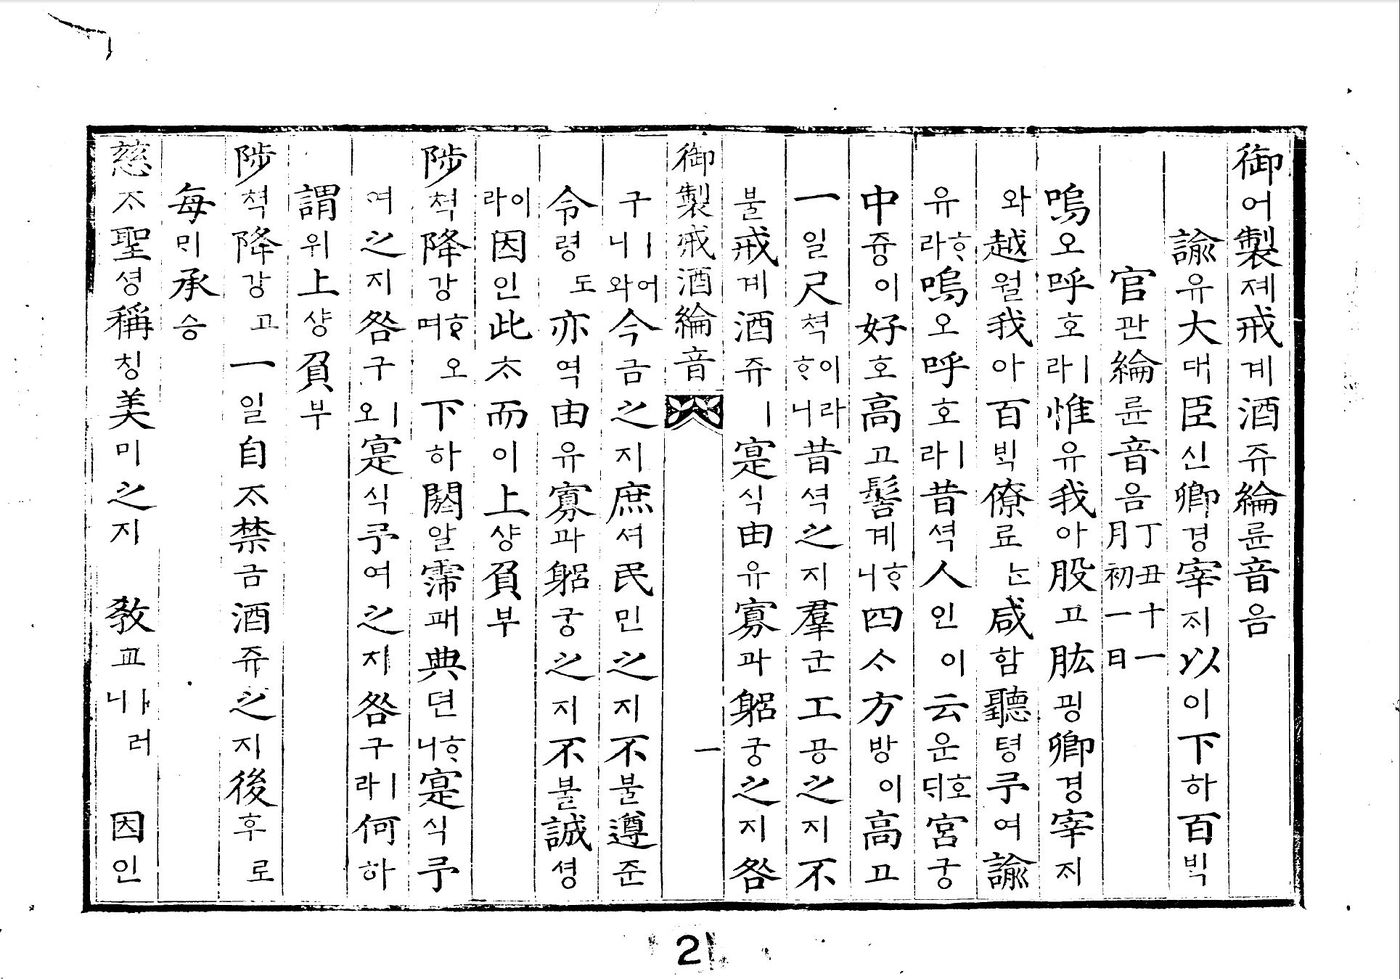 御어製졔戒계酒쥬綸륜音음
諭유大대臣신卿경宰ᄌᆡ以이下하百ᄇᆡᆨ
官관綸륜音음 丁丑十一
月初一日
嗚오呼호ㅣ라惟유我아股고肱굉卿경宰ᄌᆡ
와越월我아百ᄇᆡᆨ僚료ᄂᆞᆫ咸함聽텽予여諭
유ᄒᆞ라嗚오呼호ㅣ라昔셕人인이云운호ᄃᆡ宮궁
中즁이好호高고髻계ᄒᆞ니四ᄉᆞ方방이高고
一일尺쳑이라ᄒᆞ니昔셕之지羣군工공之지不
불戒계酒쥬ㅣ寔식由유寡과躳궁之지咎
御製戒酒綸音 一
구ㅣ어니와今금之지庶셔民민之지不불遵쥰
令령도亦역由유寡과躳궁之지不불誠셩
이라因인此ᄎᆞ而이上샹負부
陟쳑降강ᄒᆞ며오下하閼알霈패典뎐ᄒᆞ니寔식予
여之지咎구ㅣ오寔식予여之지咎구ㅣ라何하
謂위上샹負부
陟쳑降강고一일自ᄌᆞ禁금酒쥬之지後후로
每ᄆᆡ承승
慈ᄌᆞ聖셩稱칭美미之지 敎교 러 因인
2